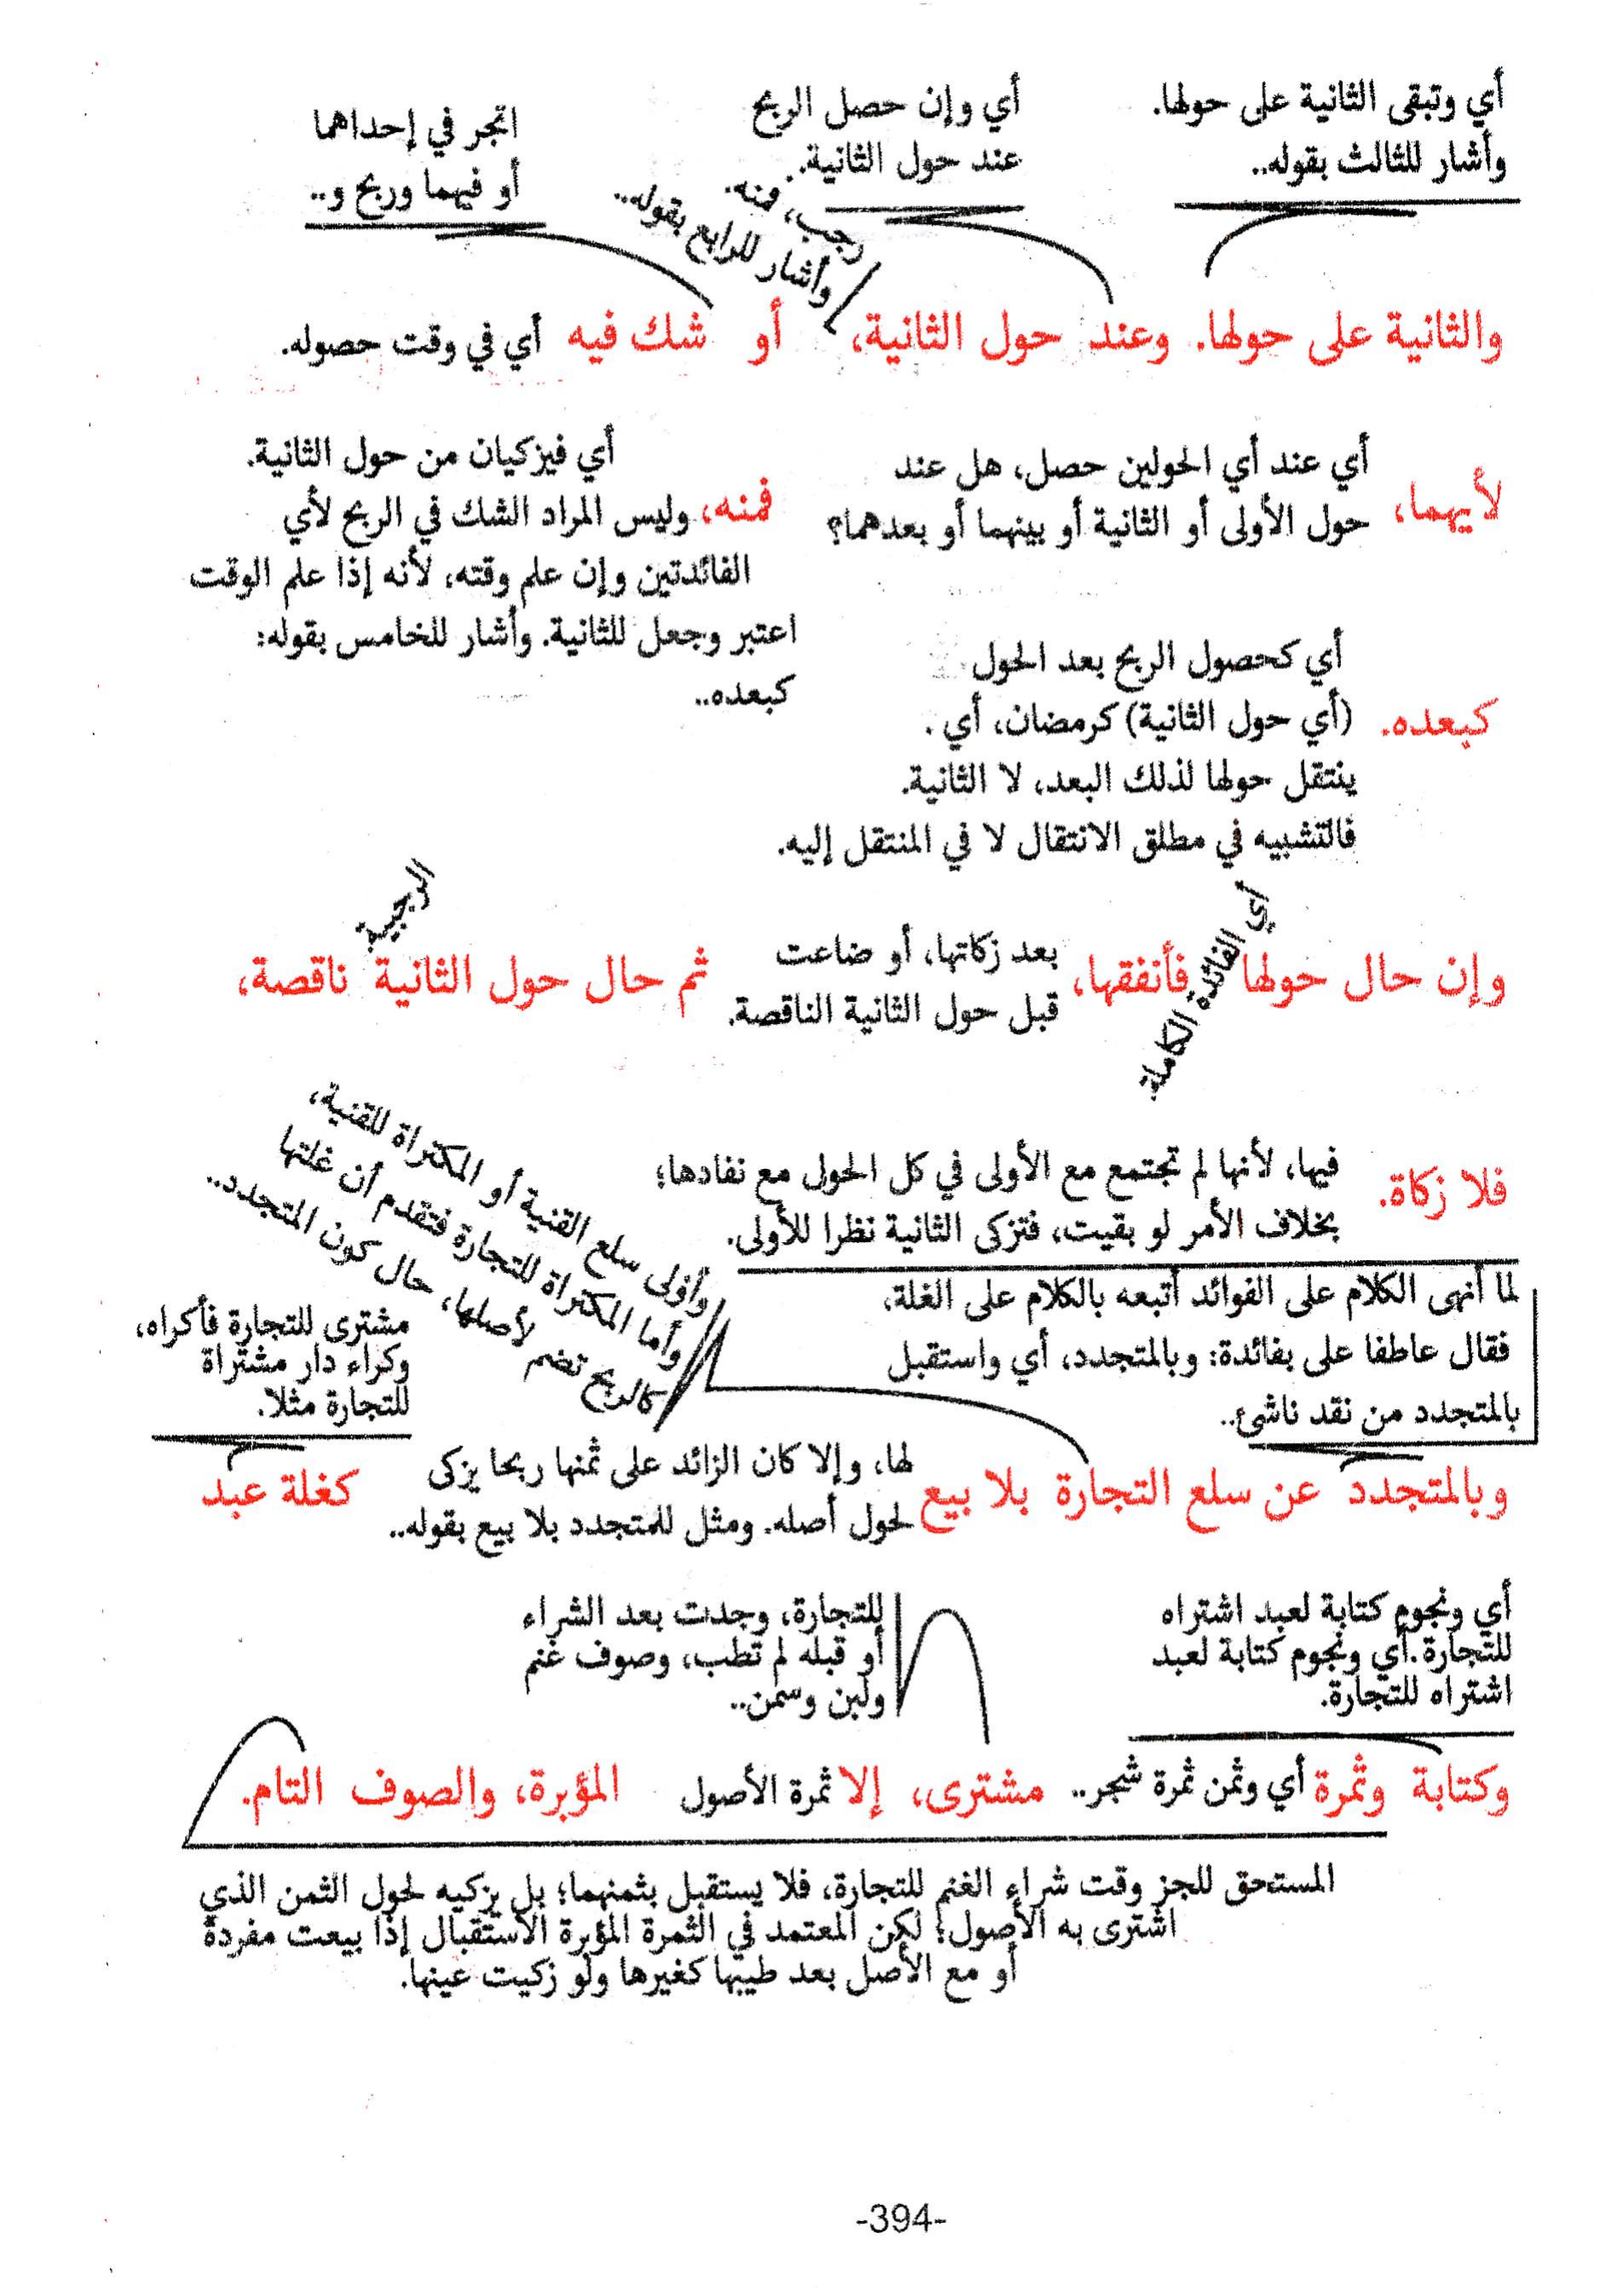 أي وتبقى الثانية على حولها.
وأشار للثالث بقوله..
أي وإن حصل الربح
عند حول الثانية.
رجب، فمنه.
وأشار للرابع بقوله..
اتجر في إحداهما
أو فيهما وربح و..
والثانية على حولها. وعند حول الثانية، أو شك فيه أي في وقت حصوله.
لأيهما،
أي عند أي الحولين حصل، هل عند
حول الأولى أو الثانية أو بينهما أو بعدهما؟
أي فيزكيان من حول الثانية.
فمنه، وليس المراد الشك في الربح لأي
الفائدتين وإن علم وقته، لأنه إذا علم الوقت
اعتبر وجعل للثانية. وأشار للخامس بقوله:
كبعده..
كبعده.
أي كحصول الربح بعد الحول
(أي حول الثانية) كرمضان، أي
ينتقل حولها لذلك البعد، لا الثانية.
فالتشبيه في مطلق الانتقال لا في المنتقل إليه.
أي الفائدة الكاملة.
الرجبية
وإن حال حولها فأنفقها،
بعد زكاتها، أو ضاعت
قبل حول الثانية الناقصة.
ثم حال حول الثانية ناقصة،
فلا زكاة.
فيها، لأنها لم تجتمع مع الأولى في كل الحول مع نفادها؛
بخلاف الأمر لو بقيت، فتزكى الثانية نظرا للأولى.
لما أنهى الكلام على الفوائد أتبعه بالكلام على الغلة،
فقال عاطفا على بفائدة: وبالمتجدد، أي واستقبل
بالمتجدد من نقد ناشئ..
وأولى سلع القنية أو المكتراة للقنية،
وأما المكتراة للتجارة فتقدم أن غلتها
كالربح تضم لأصلها، حال كون المتجدد..
مشترى للتجارة فأكراه،
وكراء دار مشتراة
للتجارة مثلا.
وبالمتجدد عن سلع التجارة بلا بيع
لها، وإلا كان الزائد على ثمنها ربحا يزكى
لحول أصله. ومثل للمتجدد بلا بيع بقوله..
كغلة عبد
أي ونجوم كتابة لعبد اشتراه
للتجارة.أي ونجوم كتابة لعبد
اشتراه للتجارة.
للتجارة، وجدت بعد الشراء
أو قبله لم تطب، وصوف غنم
ولبن وسمن..
وكتابة وثمرة أي وثمن ثمرة شجر.. مشترى، إلا ثمرة الأصول المؤبرة، والصوف التام.
المستحق للجز وقت شراء الغنم للتجارة، فلا يستقبل بثمنهما؛ بل يزكيه لحول الثمن الذي
اشترى به الأصول؛ لكن المعتمد في الثمرة المؤبرة الاستقبال إذا بيعت مفردة
أو مع الأصل بعد طيبها كغيرها ولو زكيت عينها.
-394-